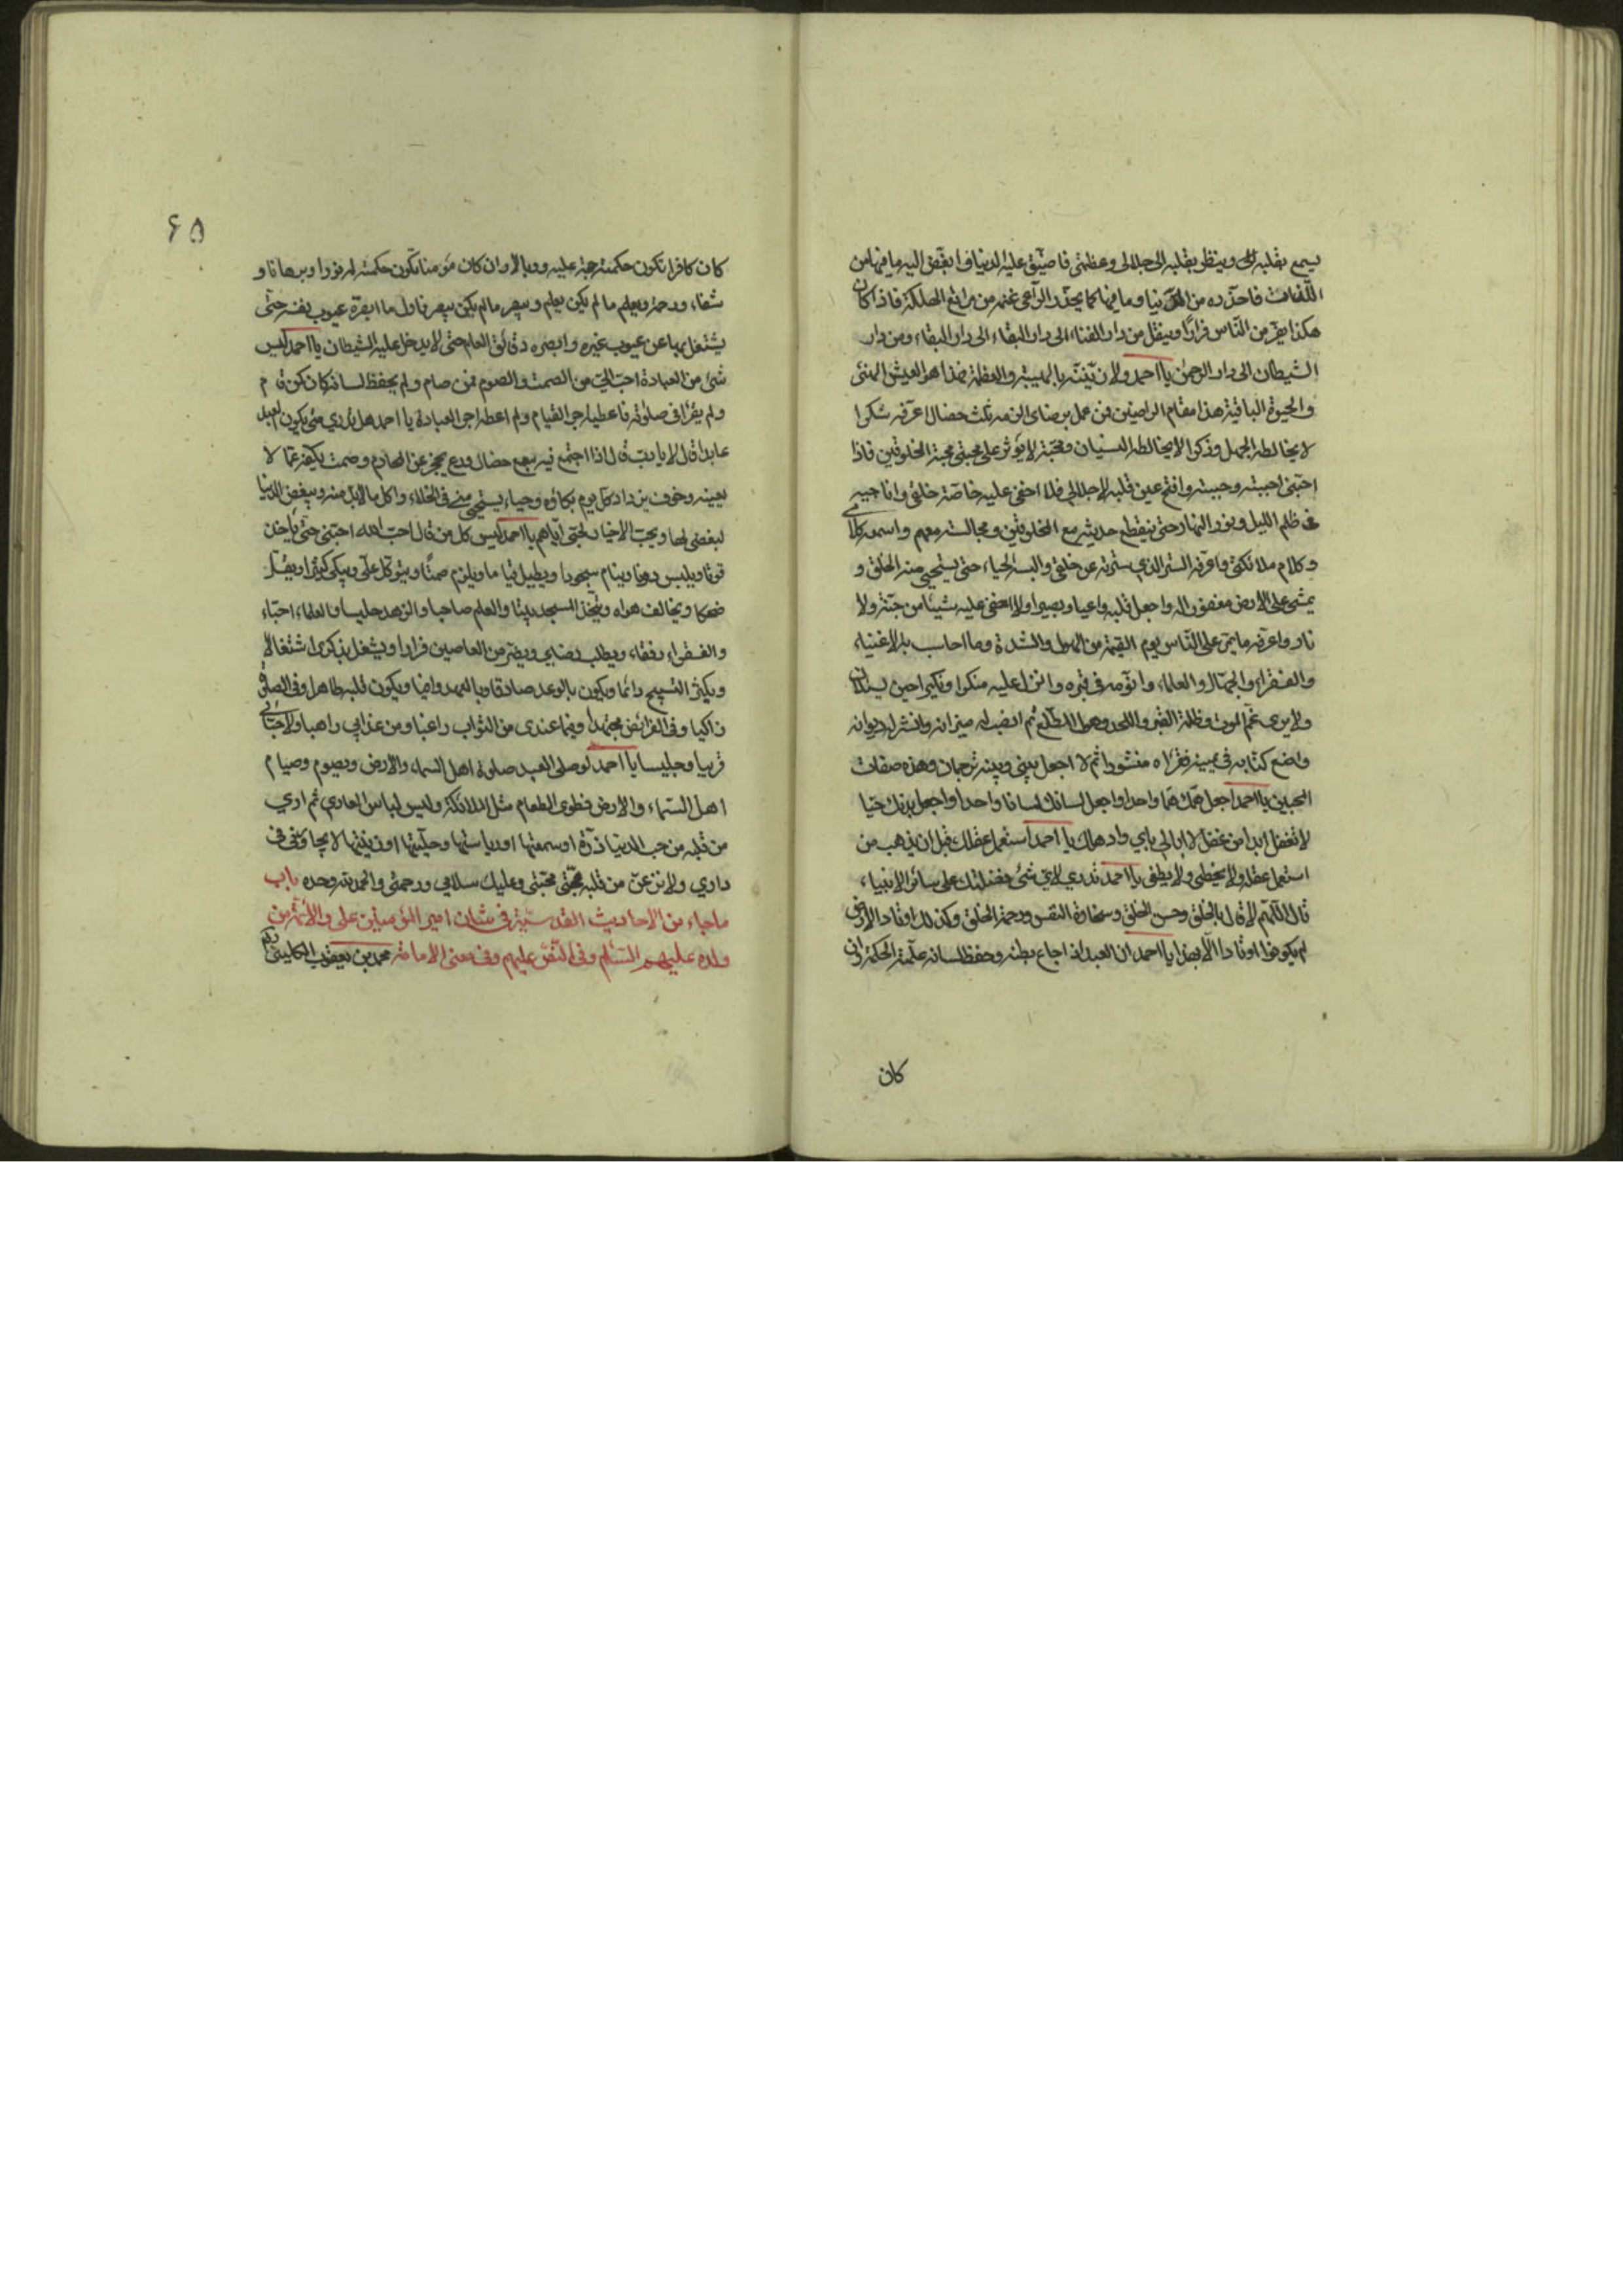 يسمع بقلبه الى وينظر بقلبه الى جلالى وعظمتى فاضيّق عليه الدنيا وابغّض اليه ما فيها من
اللّذات فاحذّره من الدّنيا وما فيها كما يحذّر الرّاعى غنمه من مراتع الهلكة فاذا كان
هكذا يفرّ من النّاس فرارًا وينقل من دار الفناء الى دار البقاء ومن دار
الشيطان الى دار الرحمن يا احمد ولازيّننّه بالهيبة والعظمة فهذا هو العيش الهنئ
والحيوة الباقية هذا مقام الراضين فمن عمل برضاى الزمه ثلث خصال اعرّفه شكرا
لا يخالطه الجهل وذكرا لا يخالطه النسيان ومحبّة لا يؤثر على محبتى محبة المخلوقين فاذا
احبّنى احببته وحببته وافتح عين قلبه الى جلالى فلا اخفى عليه خاصّة خلقى واناجيه
فى ظلم الليل ونور النهار حتى ينقطع حديثه مع المخلوقين ومجالسته معهم واسمعه كلامى
وكلام ملائكتى واعرّفه السّر الذى سترته عن خلقى والبسه الحياء حتى يستحيى منه الخلق و
يمشى على الارض مغفورا له واجعل قلبه واعيا وبصيرا ولا اخفى عليه شيئا من جنّة ولا
نار واعرّفه ما يمرّ على النّاس يوم القيمة من الهول والشدة وما احاسب به الاغنياء
والفقراء والجهّال والعلماء وانوّمه فى قبره وانزل عليه منكرا ونكيرا حين يسئلانه
ولا يرى غمّ الموت وظلمة القبر واللحد وهول المطّلع ثم انصب له ميزانه وانشر له ديوانه
واضع كتابه فى يمينه فيقرأه منشورا ثم لا اجعل بينى وبينه ترجمان وهذه صفات
المحبين يا احمد اجعل همّك همّا واحدا واجعل لسانك لسانا واحدا واجعل بدنك حيّا
لا تغفل ابدا من غفل لا ابالى باى واد هلك يا احمد استعمل عقلك قبل ان يذهب من
استعمل عقله لا يخطى ولا يطغى يا احمد تدرى لاى شئ فضلتك على سائر الانبياء
قال اللّهم لا قال بالخلق وحسن الخلق وسخاوة النفس ورحمة الخلق وكذلك اوتاد الارض
لم يكونوا اوتادا الّا بهذا يا احمد ان العبد اذا اجاع بطنه وحفظ لسانه علّمته الحكمة وان
كان
۶۵
كان كافرا تكون حكمته حجة عليه ووبالا وان كان مؤمنا تكون حكمته له نورا وبرهانا و
شفاء ورحمة ويعلم ما لم يكن يعلم ويبصر ما لم يكن يبصر فاول ما ابصّره عيوب نفسه حتّى
يشتغل بها عن عيوب غيره وابصره دقائق العلم حتى لا يدخل عليه الشيطان يا احمد ليس
شئ من العبادة احبّ الىّ من الصمت والصوم فمن صام ولم يحفظ لسانه كان كمن قام
ولم يقرأ فى صلوته فاعطيه اجر القيام ولم اعطه اجر العبادة يا احمد هل تدرى متى يكون العبد
عابدا قال لا يا ربّ قال اذا اجتمع فيه سبع خصال ورع يحجزه عن المحارم وصمت يكفّه عمّا لا
يعينه وخوف يزداد كل يوم بكاؤه وحياء يستحيى منى فى الخلاء واكل ما لابدّ منه ويبغض الدنيا
لبغضى لها ويحبّ الاخيار لحبّى ايّاهم يا احمد ليس كل من قال احبّ الله احبّنى حتى ياخذ
قوتا ويلبس دونا وينام سجودا ويطيل قياما ويلزم صمتًا ويتوكّل علىّ ويبكى كثيرا ويقلّ
ضحكا ويخالف هواه ويتّخذ المسجد بيتا والعلم صاحبا والزهد جليسا والعلماء احبّاء
والفقراء رفقاء ويطلب رضاى ويفرّ من العاصين فرارا ويشغل بذكرى اشتغالا
ويكثر التسبيح دائما ويكون بالوعد صادقا وبالعهد وافيا ويكون قلبه طاهرا وفى الصلوة
زاكيا وفى الفرائض مجتهدا وفيما عندى من الثواب راغبا ومن عذابى راهبا ولاحبّائى
قريبا وجليسا يا احمد لو صلى العبد صلوة اهل السماء والارض ويصوم وصيام
اهل السّماء والارض وطوى الطعام مثل الملائكة ولبس لباس العارى ثم ارى
من قلبه من حب الدنيا ذرّة او سمعتها او رياستها وحليتها او زينتها لا يجاورنى فى
دارى ولانزعنّ من قلبه محبّتى وعليك سلامى ورحمتى والحمد لله وحده باب
ماجاء من الاحاديث القدسيّة فى شان امير المؤمنين على والأئمّة من
ولده عليهم السّلام وفى النّصّ عليهم وفى معنى الامامة محمد بن يعقوب الكلينى